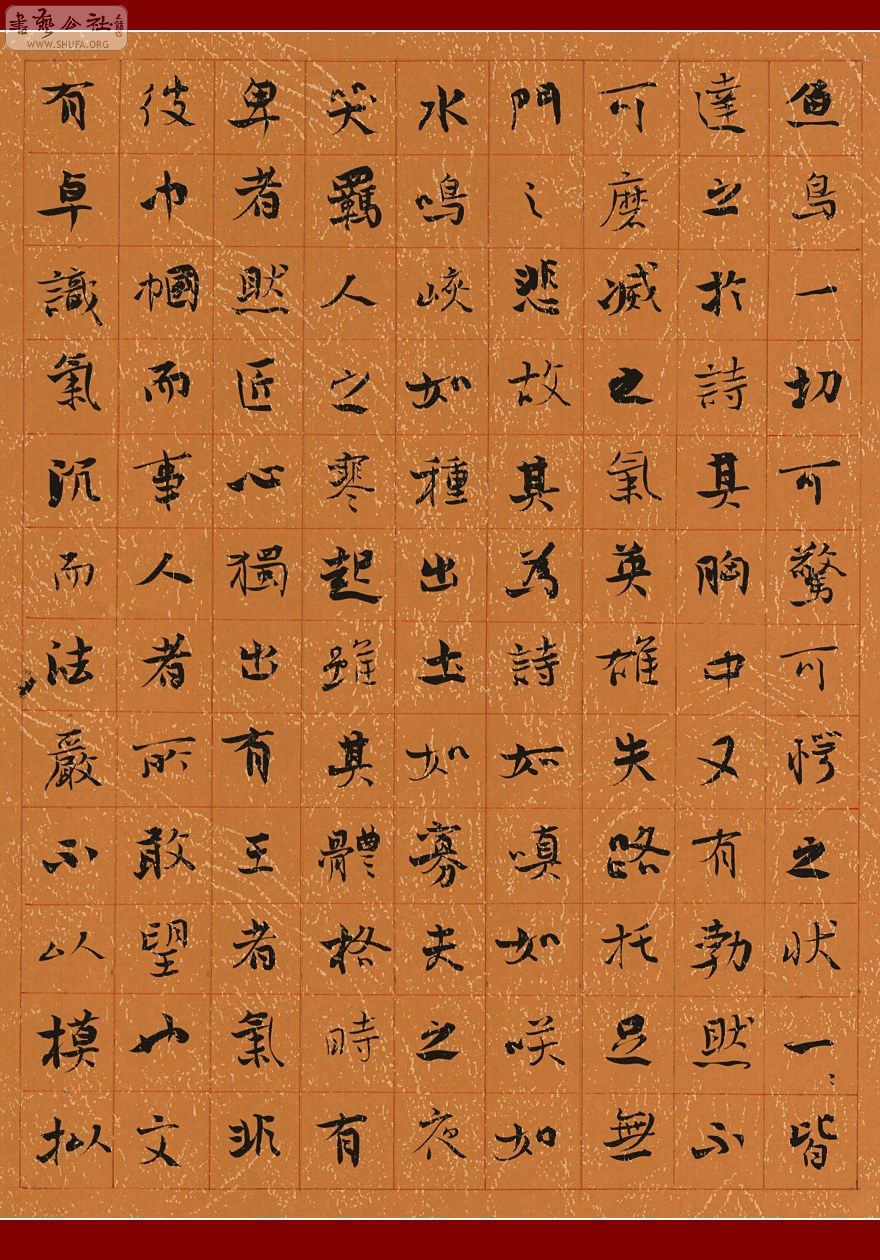 書藝公社
WWW.SHUFA.ORG
魚鳥一切可驚可愕之狀一〻皆
達之於詩其胸中又有勃然不
可磨滅之氣英雄失路托足無
門之悲故其為詩如嗔如咲如
水鳴峽如種出土如寡夫之夜
哭羈人之寒起雖其體格時有
卑者然匠心獨出有王者氣非
彼巾幗而事人者所敢望也文
有卓識氣沉而法嚴不以模拟